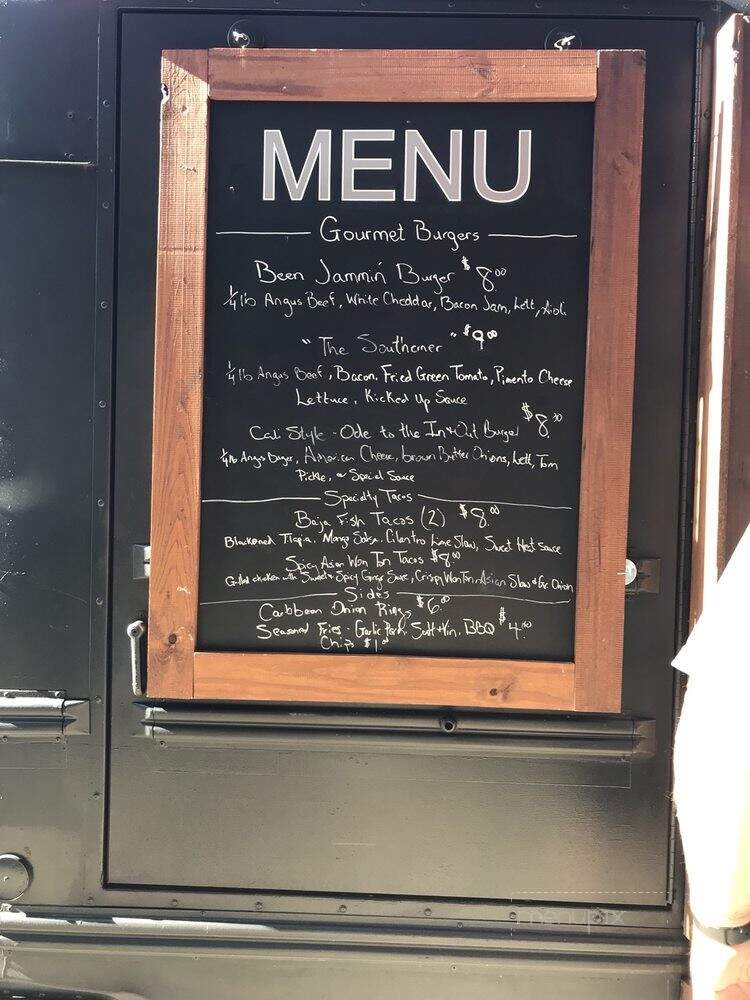 MENU
Gourmet Burgers
Been Jammin' Burger $8.00
1/4 lb Angus Beef, White Cheddar, Bacon Jam, Lett, Aioli
"The Southerner" $9.00
1/4 lb Angus Beef, Bacon, Fried Green Tomato, Pimento Cheese
Lettuce, Kicked Up Sauce
Cali Style - Ode to the In & Out Burger $8.
1/4 lb Angus American Cheese, brown Butter Onions, Lett, Tom
Pickle, Special Sauce
Specialty Tacos
Baja Fish Tacos (2) $8.00
Blackened Tilapia, Mango Salsa, Cilantro Lime Slaw, Sweet Heat Sauce
Spicy Asian Won Ton Tacos $8.00
Grilled chicken with Sweet & Spicy Sauce, Crispy Won Ton, Asian Slaw & Onion
Sides
Caribbean Onion Rings $6.00
Seasoned Fries - Garlic Parm, Salt & Vin, BBQ $4.00
Chips $1.00
menupix